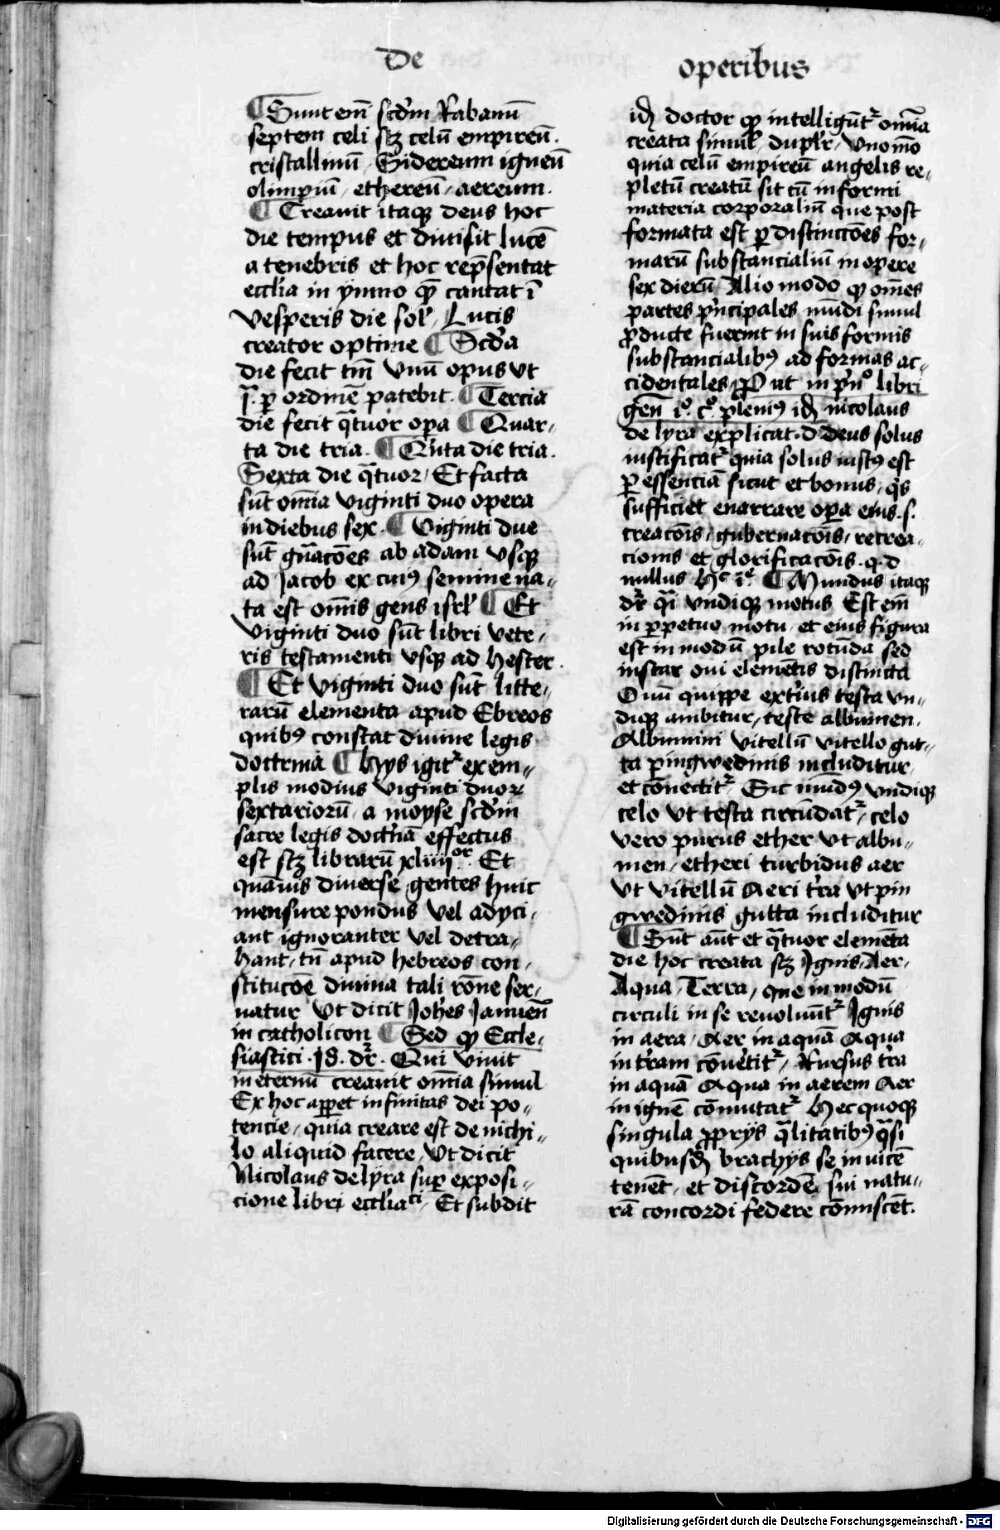 de
operibus
¶ Sunt em̄ scd̄m Rabanū
septem celi scꝫ celū empireū.
cristallinū / Sidereum igneū
olimpiū / ethereū / aereum.
¶ Creauit itaqꝫ deus hoc
die tempus et diuisit lucē
a tenebris et hoc repn̄sentat
eccl̄ia in ymno qm̄ cantat ī
vesperis die sol' / Lucis
creator optime ¶ Scd̄a
die fecit tm̄ vnū opus vt
ꝑ ordinē patebit. ¶ Tercia
die fecit q̄tuor opa ¶ Quar-
ta die tria. ¶ Qu'ta die tria.
Sexta die q̄tuor / Et facta
sūt om̄ia viginti duo opera
in diebus sex. ¶ Viginti due
sūt gn̄acōes ab adam vsqꝫ
ad Jacob ex cuiꝰ semine na-
ta est om̄is gens isrl' ¶ Et
viginti duo sūt libri vete-
ris testamenti vsqꝫ ad hester.
¶ Et viginti duo sūt litte-
rarū elementa apud Ebreos
quibꝰ constat diuine legis
doctrina ¶ hijs igit' exem-
plis modius viginti duoꝝ
sextariorū / a moyse scd̄m
sacre legis doct'nā effectus
est scꝫ librarū xliiijor. Et
quāuis diuerse gentes huic
mensure pondus vel adyci-
ant ignoranter vel detra-
hant / tn̄ apud hebreos con-
stitucōe diuina tali rōne ser-
uatur vt dicit Joh̄es Januen̄
in catholicon ¶ Sed qꝫ Eccle-
siastici. 18. dr̄. Qui viuit
in eternū creauit om̄ia simul
Ex hoc apꝑet infinitas dei po-
tencie / quia creare est de nichi-
lo aliquid facere / vt dicit
Nicolaus de lyra suꝑ exposi-
cione libri eccl̄iaci / Et subdit
id̄ doctor qꝫ intelligūt' om̄ia
creata simul' dupl'r / vno mō
quia celū empireū angelis re-
pletū creatū sit cū informi
materia corporaliū que post
formata est ꝑ distinctōes for-
marū substancialiū in opere
sex dierū / Alio modo qꝫ om̄es
partes pn̄cipales mūdi simul
ꝓducte fuerint in suis formis
substancialibꝰ ad formas ac-
cidentales / Put in pn̄o libri
gen̄ 1o. co pleniꝰ id̄ nicolaus
de lyra explicat. d deus solus
iustificat' quia solus iustꝰ est
ꝑ essenciā sicut et bonus / q's
sufficiet enarrare opa eius. s.
creacōis / gubernacōis / recrea-
cionis et glorificacōis. q. d
nullus hec io ¶ Mundus itaqꝫ
dr̄ q̄i vndiqꝫ motus Est em̄
in ꝑpetuo motu / et eius figura
est in modū pile rotūda sed
instar oui elemētis distincta
Ouū quippe ext'ius testa vn-
diqꝫ ambitur / teste albumen.
Albumini vitellū vitello gut-
ta pingwedinis includitur
et cōnectit' / Sic mūdꝰ vndiqꝫ
celo vt testa circūdat' / celo
vero purus ether vt albu-
men / etheri turbidus aer
vt vitellū Aeri t'ra vt pin
gwedinis gutta includitur
¶ Sūt aūt et q̄tuor elemēta
die hoc creata scꝫ Ignis / Aer /
Aqua / Terra / que in modū
circuli in se reuoluūt' Ignis
in aera / Aer in aquā Aqua
in t'ram cōuertit' / Rursus t'ra
in aquā Aqua in aerem Aer
in ignē cōmutat' hec quoqꝫ
singula ꝓprijs q̄litatibꝰ q̄si
quibusd̄ brachijs se inuicē
tenēt / et discordē sui natu-
rā concordi federe cōmiscēt.
Digitalisierung gefördert durch die Deutsche Forschungsgemeinschaft - DFG